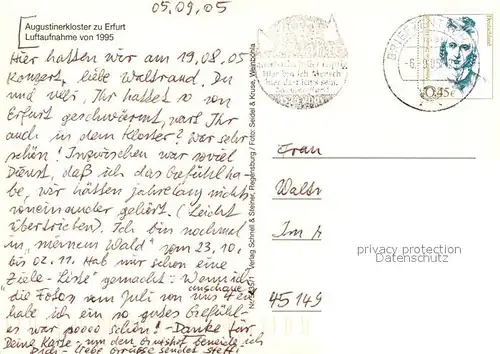 05.09.05
Augustinerkloster zu Erfurt
Luftaufnahme von 1995
Hier hatten wir am 19.08.05
Konzert, liebe Waltraud. Du
und Ueli, Ihr hattet so von
Erfurt geschwärmt, wart Ihr
auch in dem Kloster? War sehr
schön! Inzwischen war soviel
Dienst, daß ich das Gefühl ha-
be, wir hätten jahrelang nichts
voneinander gehört. (Leicht
übertrieben). Ich bin nochmal
in "meinem Wald" vom 23.10.
bis 02.11. Hab mir schon eine
"Ziele-Liste" gemacht. Wenn ich
die Fotos vom Juli von uns anschaue,
habe ich ein so gutes Gefühl -
es war soooo schön! - Danke für
Deine Karte - um den beneide ich
Dich - Liebe Grüße sendet Steffi
Verlag Schnell & Steiner, Regensburg / Foto: Seidel & Kruse, Weinböhla
BRIEFZENTRUM
0,45€
Frau
Waltr
Im
45149
privacy protection
DATENSCHUTZ